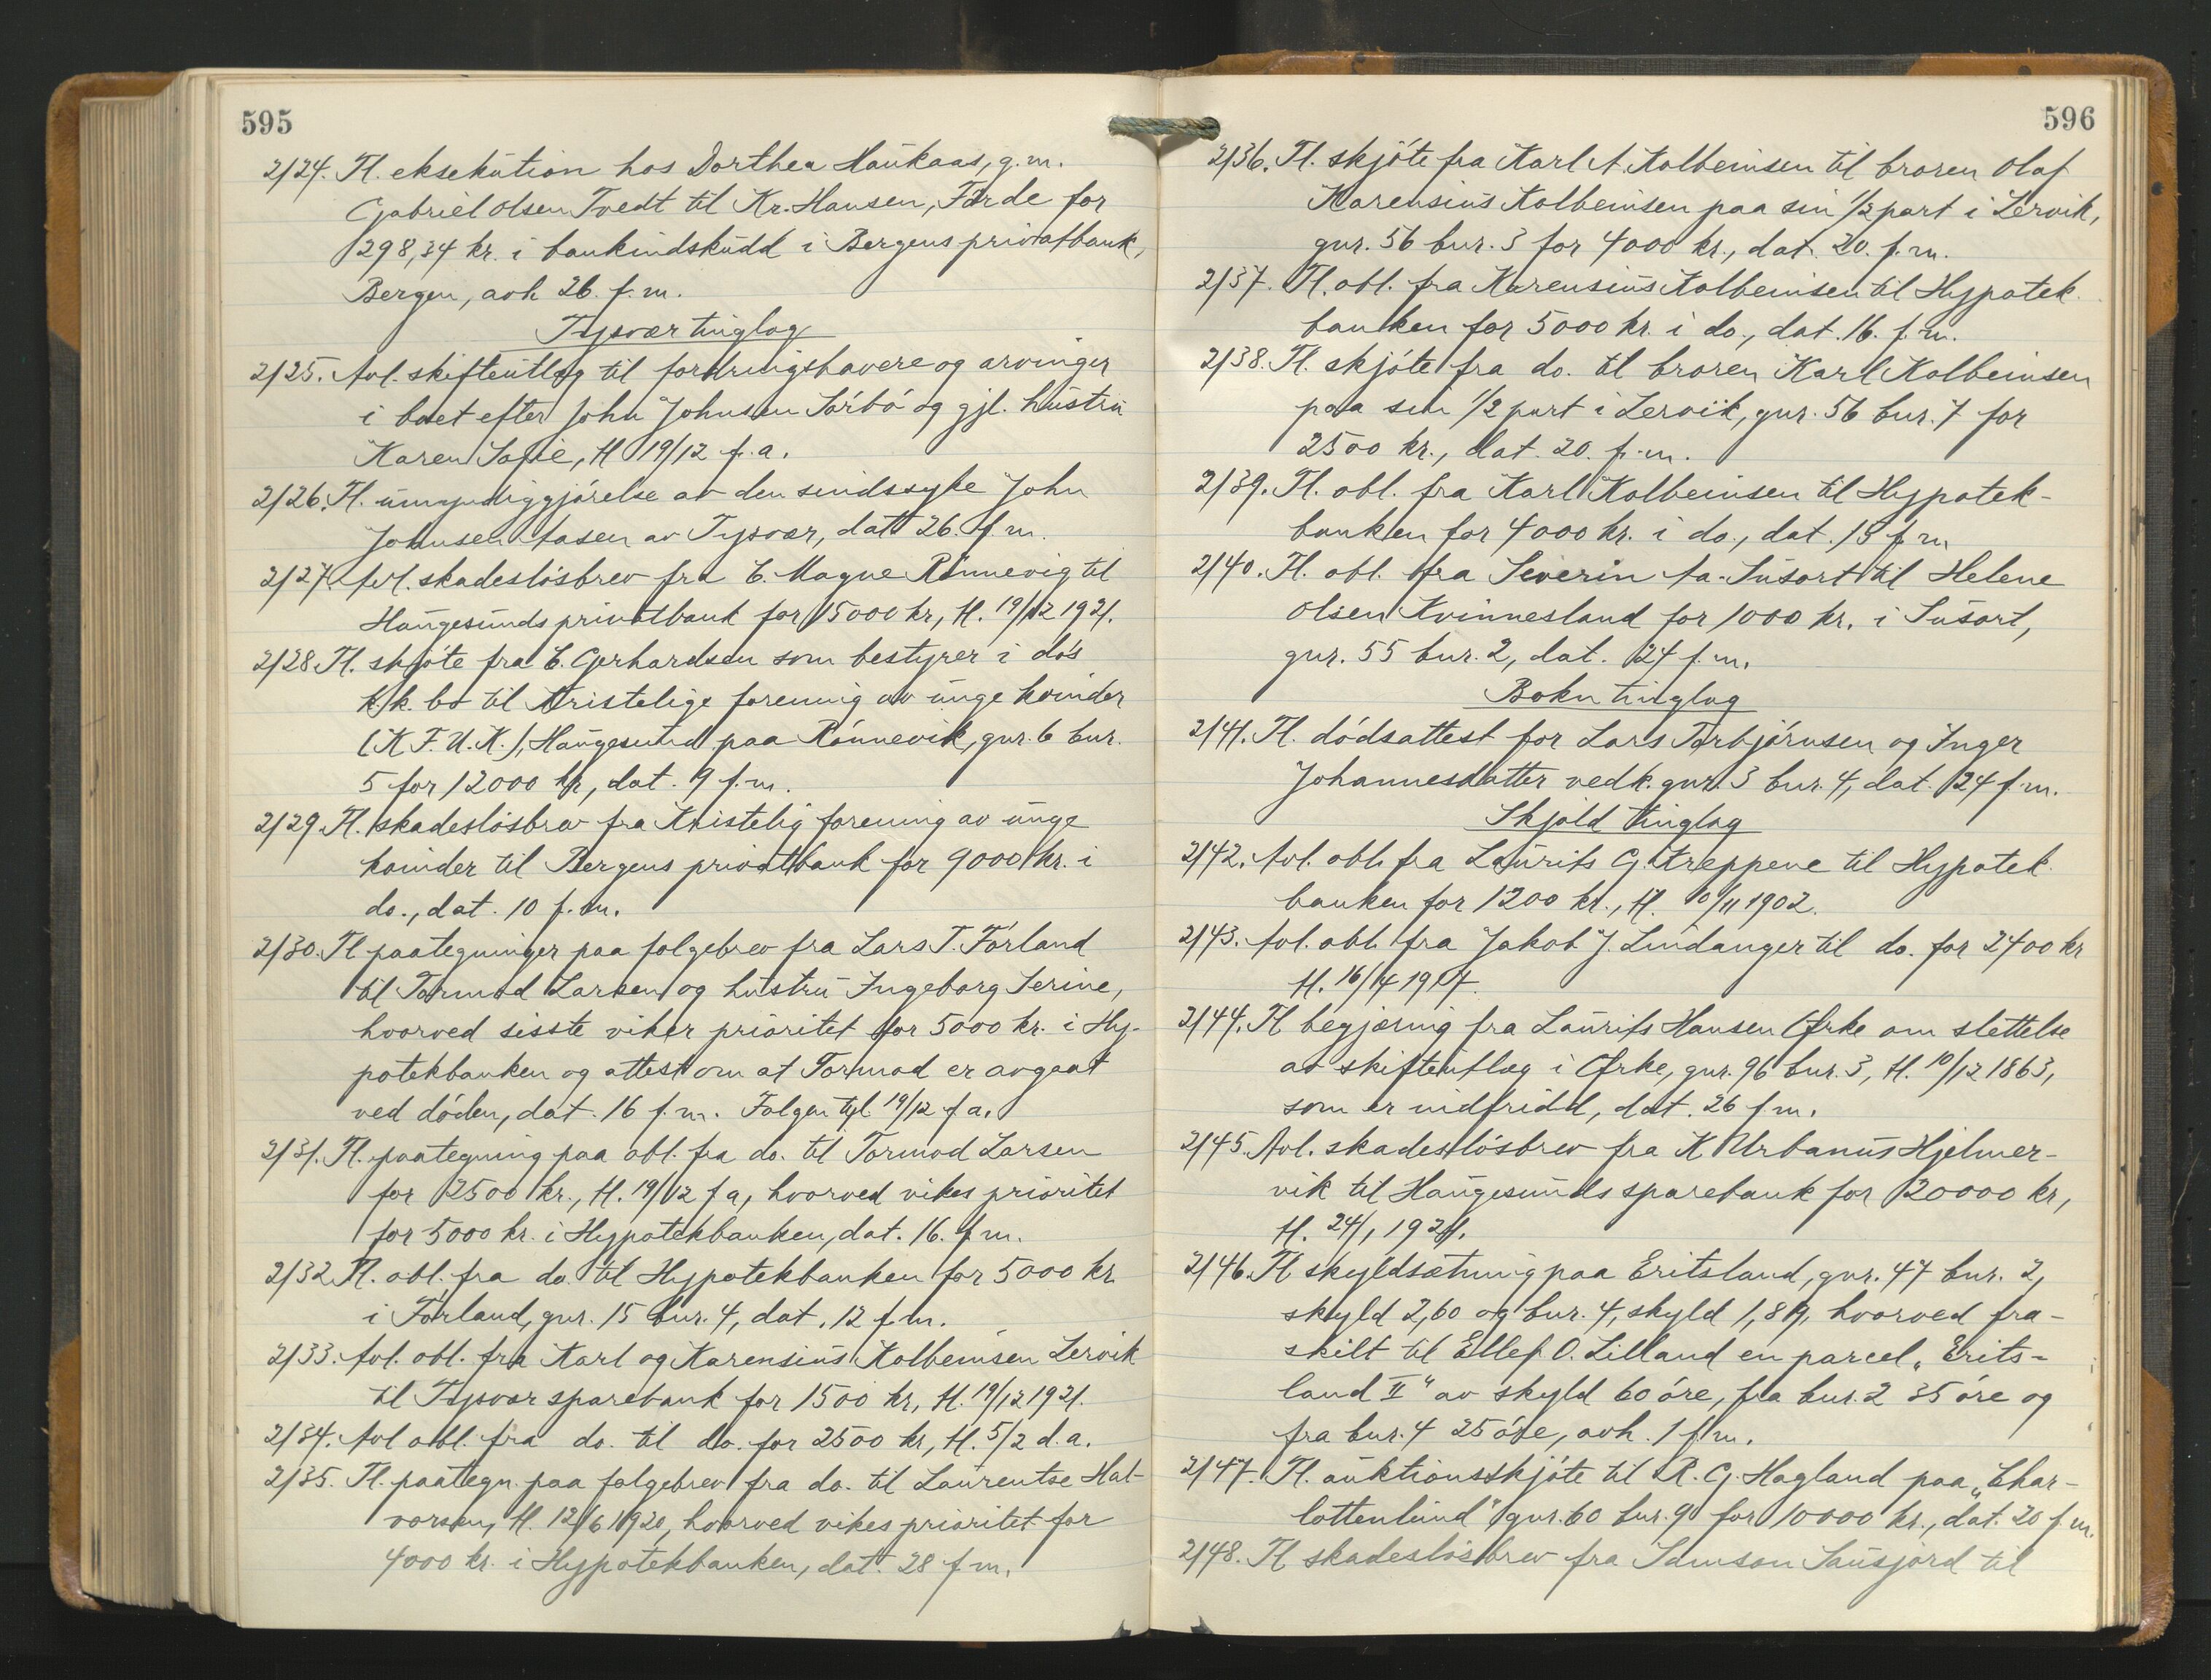 595
2124. Tl. eksekution hos Dorthea Haukaas, g.m.
Gabriel Olsen Tvedt til Kr. Hansen, Førde for
298,34 kr. i bankindskudd i Bergens privatbank,
Bergen, avh. 26. f.m.
Tysvær tinglag
2125. Avl. skifteutlæg til fordringshavere og arvinger
i boet efter John Johnsen Sørbø og gjl. hustru
Karen Sofie, tl. 19/12 f.a.
2126. Tl. umyndiggjørelse av den sindssyke John
Johnsen Aasen av Tysvær, dat 26. f.m.
2127. Avl. skadesløsbrev fra C. Magne Rønnevig til
Haugesunds privatbank for 15000 kr, tl. 19/12 1921.
2128. Tl. skjøte fra C. Gerhardsen som bestyrer i do's
k.k. bo til Kristelige forening av unge kvinder
(K.F.U.K.), Haugesund paa Rønnevik, gnr. 6 bnr.
5 for 12000 kr, dat. 9 f.m.
2129. Tl. skadesløsbrev fra Kristelig forening av unge
kvinder til Bergens privatbank for 9000 kr. i
do., dat. 10 f.m.
2130. Tl paategninger paa følgebrev fra Lars T. Førland
til Tormod Larsen og hustru Ingeborg Serine,
hvorved sisste viker prioritet for 5000 kr. i Hy-
potekbanken og attest om at Tormod er avgaat
ved døden, dat. 16 f.m. Følgen tgl. 19/12 f.a.
2131. Tl. paategning paa obl. fra do. til Tormod Larsen
for 2500 kr., tl. 19/12 f a, hvorved vikes prioritet
for 5000 kr. i Hypotekbanken, dat. 16. f.m.
2132 Tl. obl. fra do. til Hypotekbanken for 5000 kr
i Førland, gnr. 15 bnr. 4, dat. 12 f.m.
2133. Avl. obl. fra Karl og Karensius Kolbeinsen Lervik
til Tysvær sparebank for 1500 kr, tl. 19/12 1921.
2134. Avl obl. fra do. til do. for 2500 kr, tl. 5/2 d.a.
2135. Tl. paategn. paa følgebrev fra do. til Laurentse Hal-
vorsen, tl. 12/6 1920, hvorved vikes prioritet for
4000 kr. i Hypotekbanken, dat. 28 f.m.
596
2136. Tl. skjøte fra Karl A. Kolbeinsen til broren Olaf
Karensius Kolbeinsen paa sin 1/2 part i Lervik,
gnr. 56 bnr. 3 for 4000 kr., dat. 20. f.m.
2137. Tl. obl. fra Karensius Kolbeinsen til Hypotek-
banken for 5000 kr. i do., dat. 16. f.m.
2138. Tl. skjøte fra do. til broren Karl Kolbeinsen
paa sin 1/2 part i Lervik, gnr. 56 bnr. 7 for
2500 kr., dat. 20. f.m.
2139. Tl. obl. fra Karl Kolbeinsen til Hypotek-
banken for 4000 kr. i do., dat. 15 f m
2140. Tl. obl. fra Severin Aa. Susort til Helene
Olsen Kvinnesland for 1000 kr. i Susort,
gnr. 55 bnr. 2, dat. 24 f.m.
Bokn tinglag
2141. Tl. dødsattest for Lars Torbjørnsen og Inger
Johannesdatter vedk. gnr. 3 bnr. 4, dat. 24 f.m.
Skjold tinglag
2142. Avl. obl. fra Laurits G. Streppene til Hypotek-
banken for 1200 kr., tl. 10/11 1902.
2143. Avl. obl. fra Jakob J. Lindanger til do. for 2400 kr
tl. 16/4 1907.
2144. Tl begjæring fra Laurits Hansen Ørke om slettelse
av skifteutlæg i Ørke, gnr. 96 bnr. 3, tl. 10/12 1863,
som er indfridd, dat. 26 f.m.
2145. Avl. skadesløsbrev fra K Urbanus Hjelmer-
vik til Haugesunds sparebank for 20000 kr,
tl. 24/1 1921.
2146. Tl skyldsætning paa Eritsland, gnr. 47 bnr. 2,
skyld 2,60 og bnr. 4, skyld 1,89, hvorved fra-
skilt til Ellef O. Lilland en parcel „Erits-
land II" av skyld 60 øre, fra bnr. 2 35 øre og
fra bnr. 4 25 øre, avh. 1 f.m.
2147. Tl. auktionsskjøte til R. G. Hagland paa „Char-
lottenlund" gnr. 60 bnr. 9 for 10000 kr., dat. 20 f.m.
2148. Tl skadesløsbrev fra Samson Sausjord til